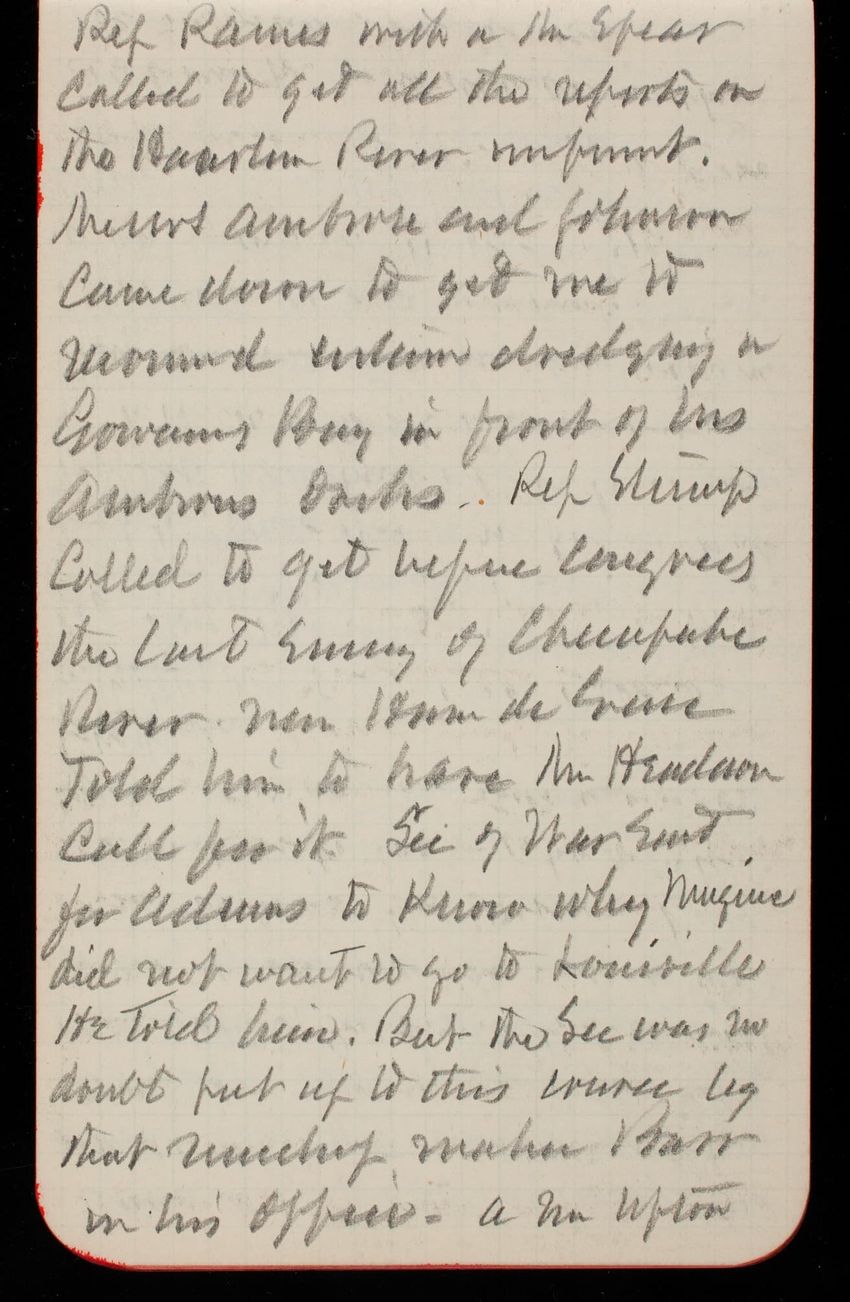 Rep Raines with a Mr Spear
Called to get all the reports on
the Haarlem River imprmt.
Messrs Ambrose and Johnson
Came down to get me to
recommend certain dredging in
Gowanus Bay in front of his
Ambrose Docks. Rep Stump
Called to get before Congress
the last Survey of Chesapeake
River near Havre de Grace
Told him to have Mr Headman
Call for it. Sec of War Sent
for Adams to Know why
did not want to go to Louisville
He Told him. But the Sec was no
doubt put up to this course by
that mischief maker Barr
in his Office - A Mr Upton